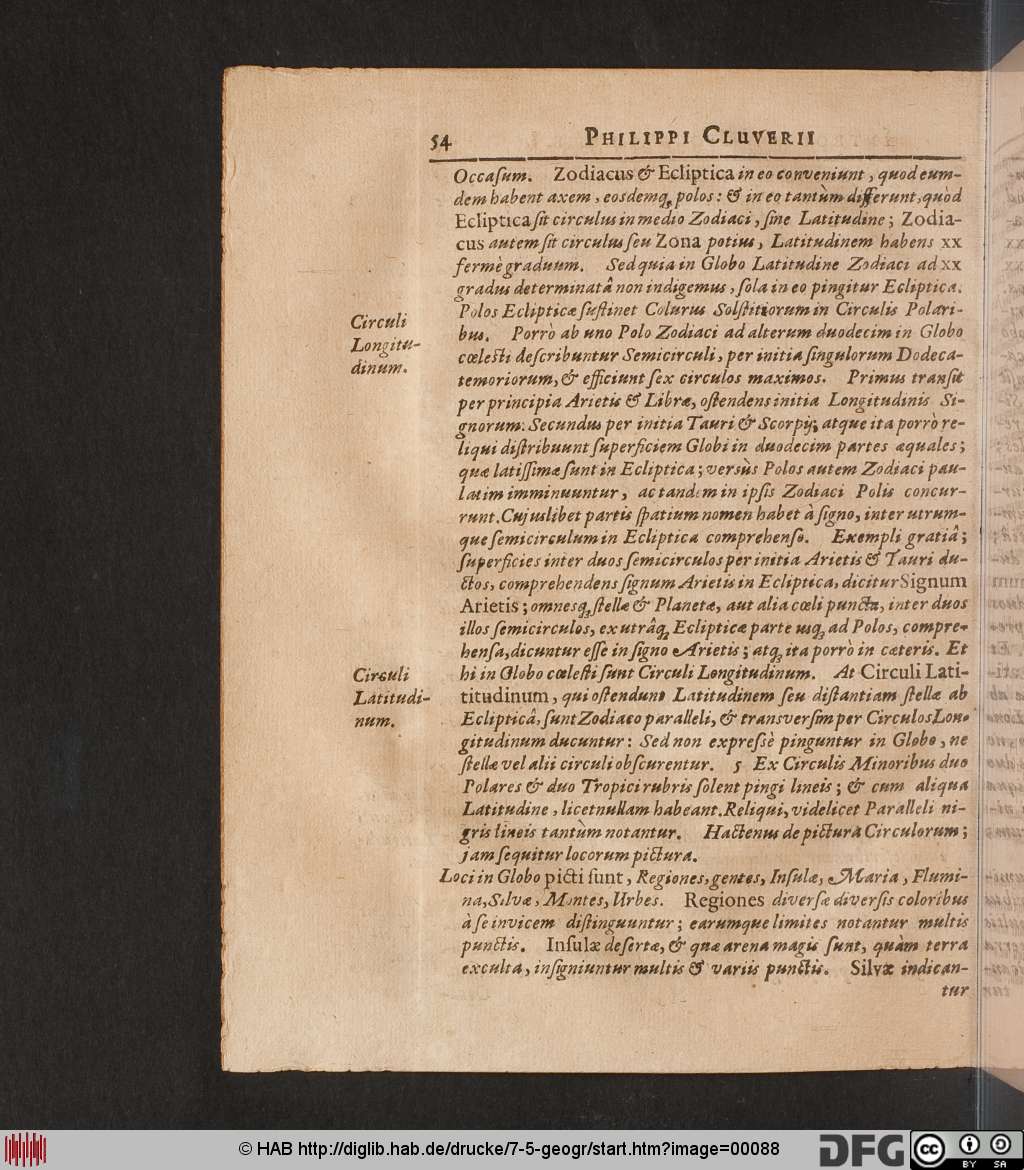 54 PHILIPPI CLUVERII
Occaſum. Zodiacus & Ecliptica in eo conveniunt, quod eum-
dem habent axem, eosdemq; polos: & in eo tantùm differunt, quòd
Ecliptica ſit circulus in medio Zodiaci, ſine Latitudine; Zodia-
cus autem ſit circulus ſeu Zona potius, Latitudinem habens xx
fermè graduum. Sed quia in Globo Latitudine Zodiaci ad xx
gradus determinatâ non indigemus, ſola in eo pingitur Ecliptica.
Polos Eclipticæ ſuſtinet Colurus Solſtitiorum in Circulis Polari-
Circuli
Longitu-
dinum.
bus. Porrò ab uno Polo Zodiaci ad alterum duodecim in Globo
cœleſti deſcribuntur Semicirculi, per initia ſingulorum Dodeca-
temoriorum, & efficiunt ſex circulos maximos. Primus tranſit
per principia Arietis & Libræ, oſtendens initia Longitudinis Si-
gnorum: Secundus per initia Tauri & Scorpij; atque ita porrò re-
liqui diſtribuunt ſuperficiem Globi in duodecim partes æquales;
quæ latiſſimæ ſunt in Ecliptica; versùs Polos autem Zodiaci pau-
latim imminuuntur, ac tandem in ipſis Zodiaci Polis concur-
runt. Cujuslibet partis ſpatium nomen habet à ſigno, inter utrum-
que ſemicirculum in Ecliptica comprehenſo. Exempli gratiâ;
ſuperficies inter duos ſemicirculos per initia Arietis & Tauri du-
ctos, comprehendens ſignum Arietis in Ecliptica, dicitur Signum
Arietis; omnesq; ſtellæ & Planetæ, aut alia cœli puncta, inter duos
illos ſemicirculos, ex utrâq; Eclipticæ parte usq; ad Polos, compre-
henſa, dicuntur eſſe in ſigno Arietis; atq; ita porrò in cæteris. Et
hi in Globo cœleſti ſunt Circuli Longitudinum. At Circuli Lati-
Circuli
Latitudi-
num.
titudinum, qui oſtendunt Latitudinem ſeu diſtantiam ſtellæ ab
Eclipticâ, ſunt Zodiaco paralleli, & transverſim per Circulos Lon-
gitudinum ducuntur: Sed non expreſsè pinguntur in Globo, ne
ſtellæ vel alii circuli obſcurentur. 5 Ex Circulis Minoribus duo
Polares & duo Tropici rubris ſolent pingi lineis; & cum aliqua
Latitudine, licet nullam habeant. Reliqui, videlicet Paralleli ni-
gris lineis tantùm notantur. Hactenus de picturâ Circulorum;
jam ſequitur locorum pictura.
Loci in Globo picti ſunt, Regiones, gentes, Inſulæ, Maria, Flumi-
na, Silvæ, Montes, Urbes. Regiones diverſæ diverſis coloribus
à ſe invicem diſtinguuntur; earumque limites notantur multis
punctis. Inſulæ deſertæ, & quæ arena magis ſunt, quàm terra
exculta, inſigniuntur multis & variis punctis. Silvæ indican-
tur
© HAB http://diglib.hab.de/drucke/7-5-geogr/start.htm?image=00088
DFG
cc
BY SA